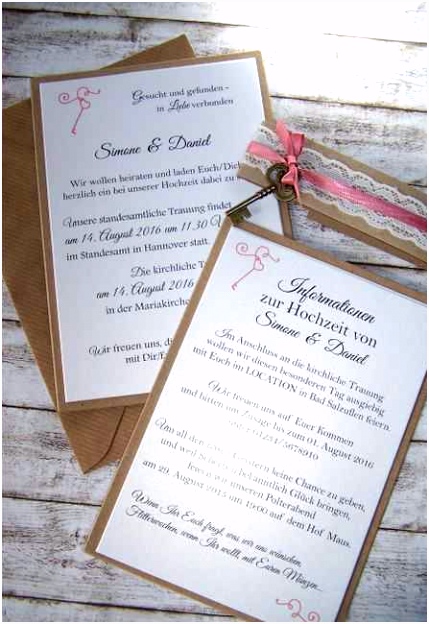 Gesucht und gefunden -
in Liebe verbunden
Simone & Daniel
Wir wollen heiraten und laden Euch/Dich
herzlich ein bei unserer Hochzeit dabei zu
Unsere standesamtliche Trauung findet
am 14. August 2016 um 11.30 U
im Standesamt in Hannover statt.
Die kirchliche T
am 14. August 2016
in der Mariakirche
Wir freuen uns, die
mit Dir/E
Informationen
zur Hochzeit von
Simone & Daniel
Im Anschluss an die kirchliche Trauung
wollen wir diesen besonderen Tag ausgiebig
mit Euch im LOCATION in Bad Salzuflen feiern.
Wir freuen uns auf Euer Kommen
und bitten um Zusage bis zum 01. August 2016
Um all den keine Chance zu geben,
und weil bekanntlich Glück bringen,
feiern wir unseren Polterabend
am 29. August 2015 um 19:00 auf dem Hof Maus.
Wenn Ihr Euch fragt, was wir uns wünschen,
Flitterwochen, wenn Ihr wollt, mit Euren Münzen...